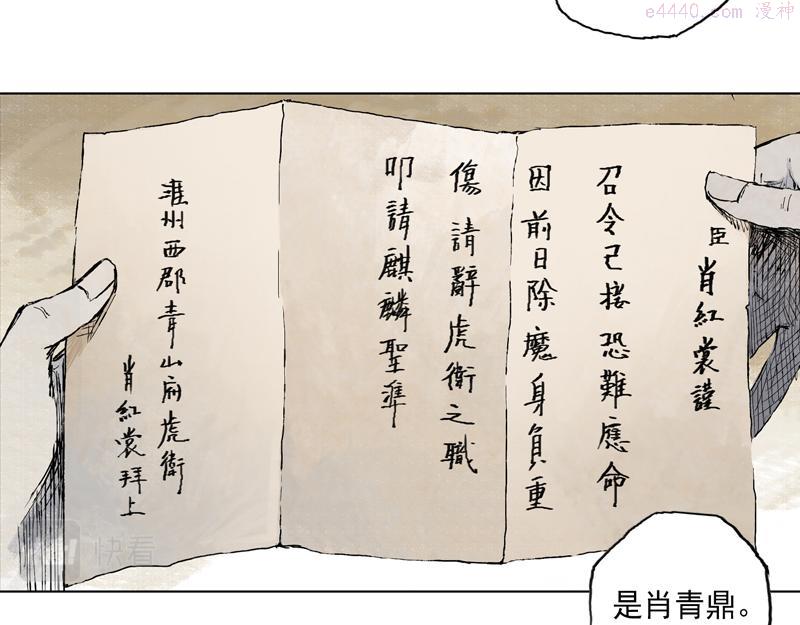 e4440.com 漫神
臣肖紅裳謹
召令已接恐難應命
因前日除魔身負重
傷請辭虎衛之職
叩請麒麟聖準
淮州西郡青山府虎衛
肖紅裳拜上
快看
是肖青鼎。